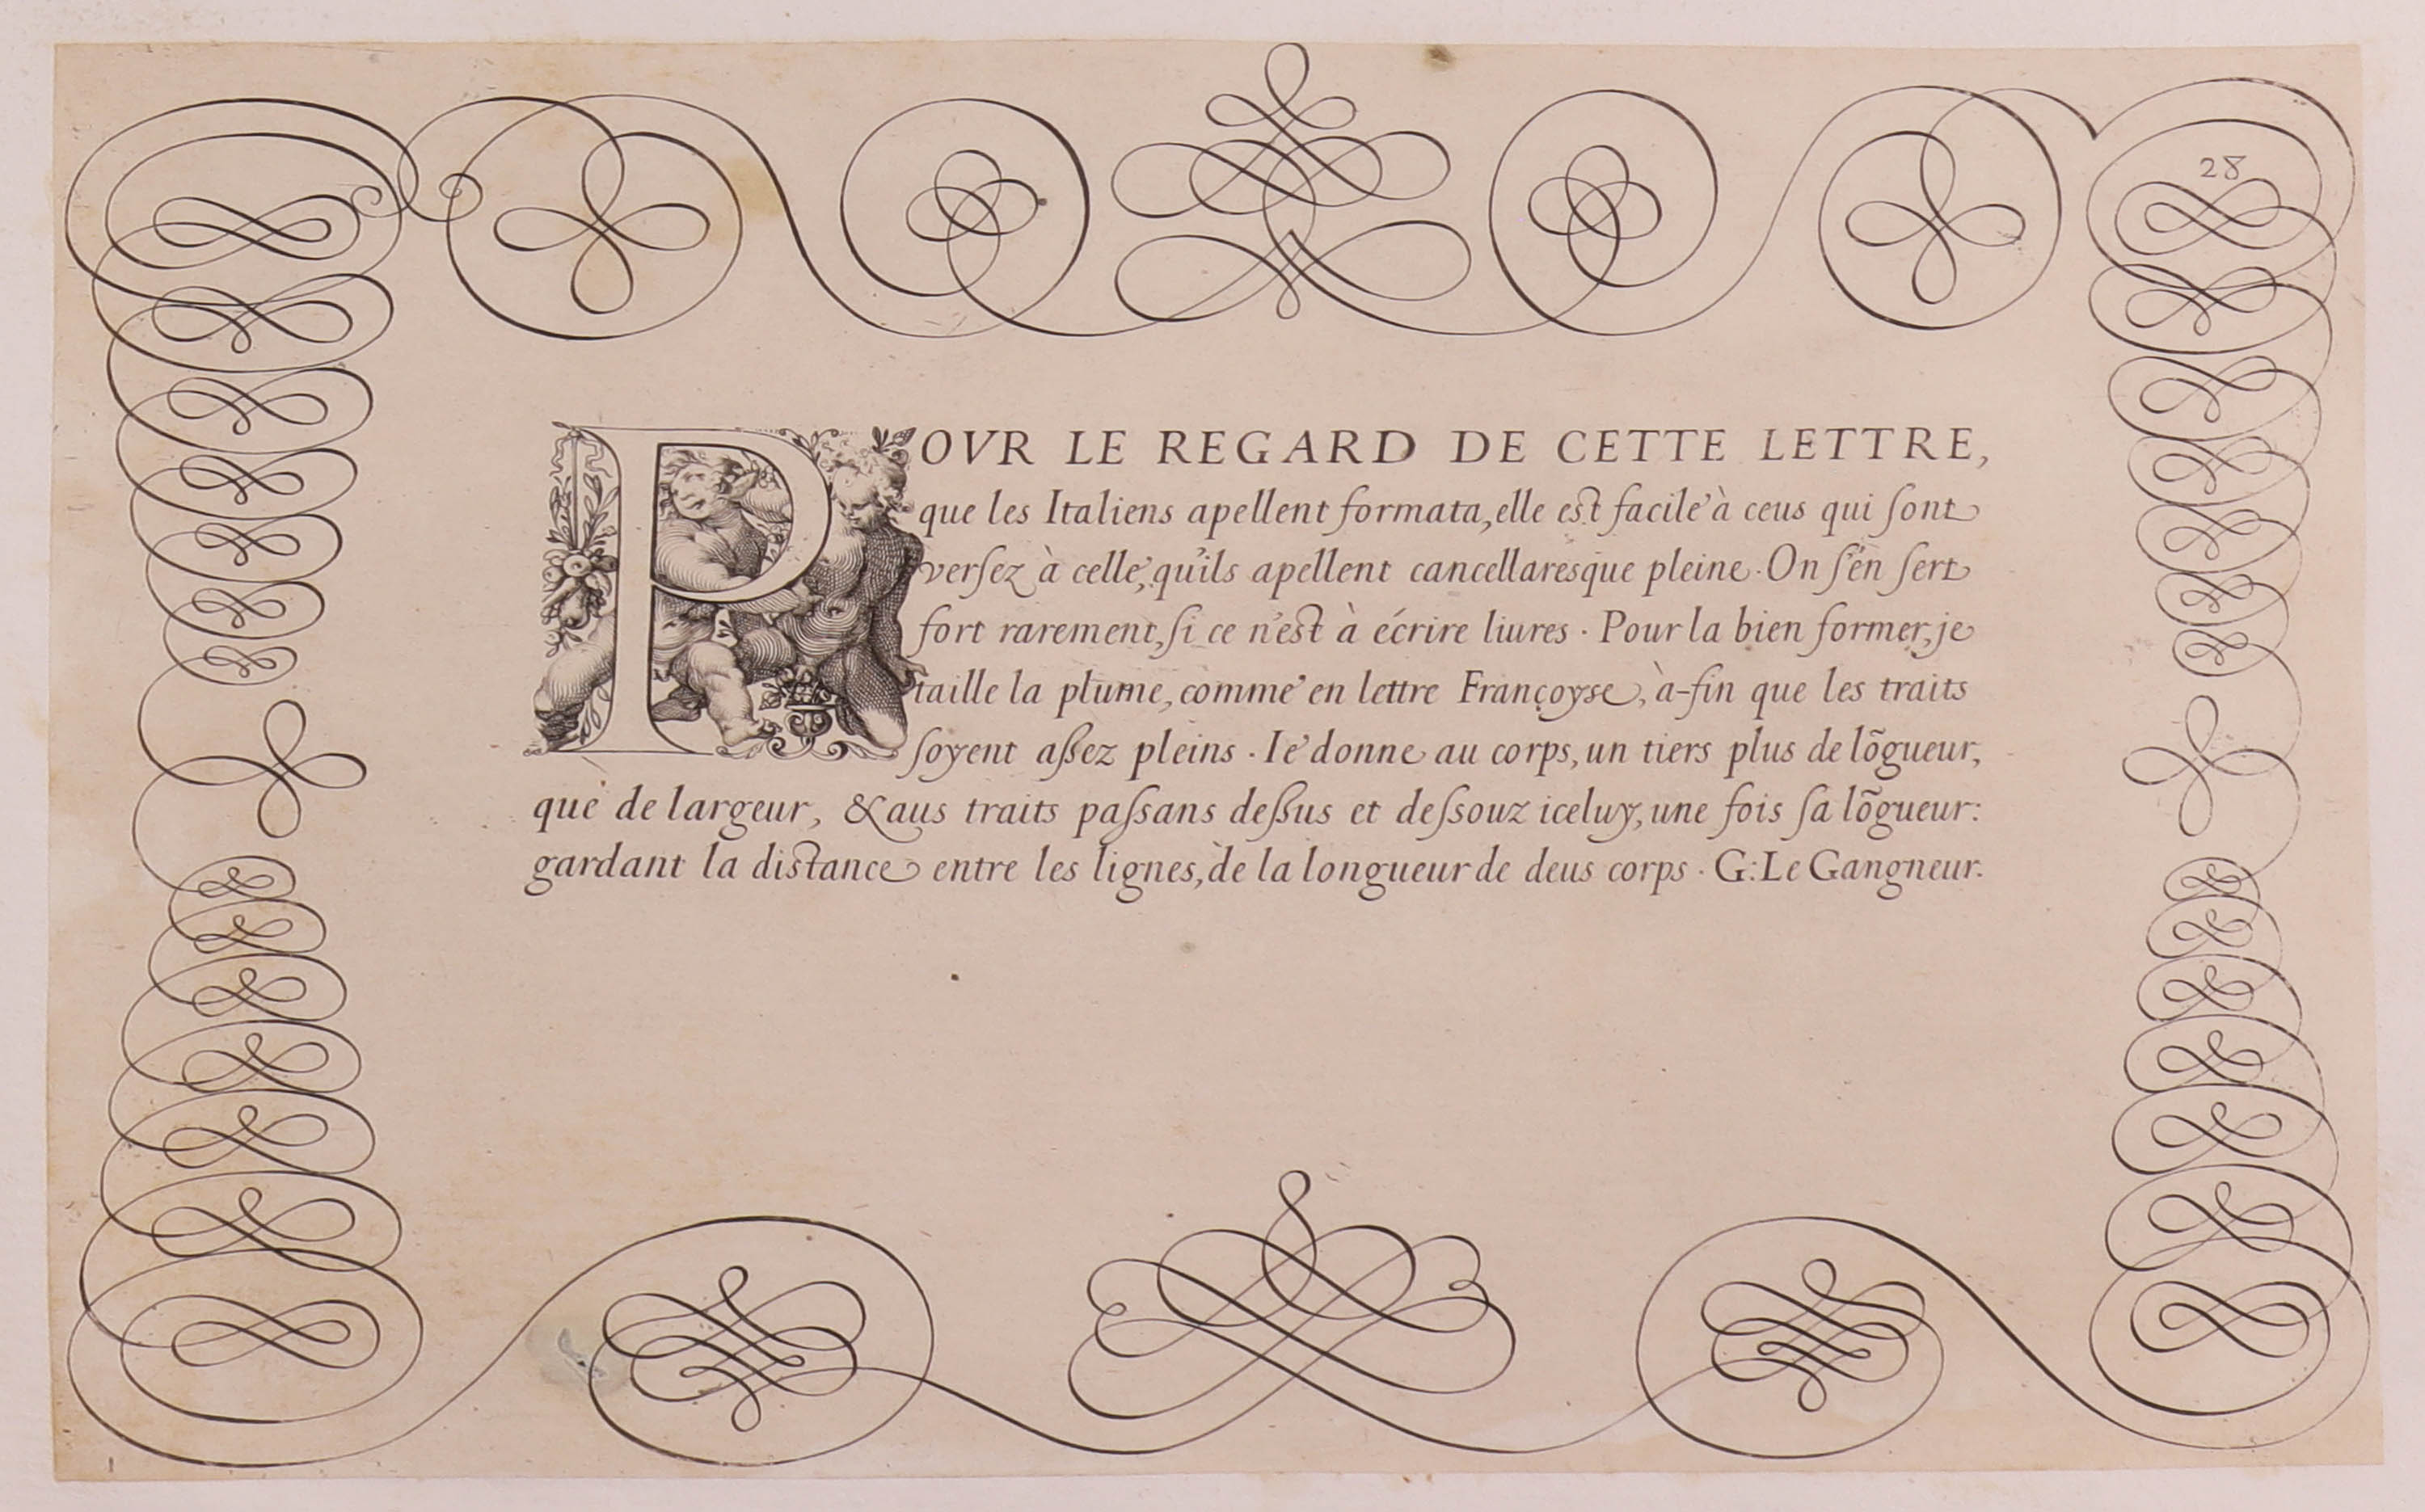 28
POVR LE REGARD DE CETTE LETTRE,
que les Italiens apellent formata, elle est facile à ceus qui ſont
verſez à celle, qu'ils apellent cancellaresque pleine. On ſ'en ſert
fort rarement, ſi ce n'est à écrire liures. Pour la bien former, je
taille la plume, comme en lettre Françoyse, à-fin que les traits
ſoyent aßez pleins. Ie donne au corps, un tiers plus de lõgueur,
que de largeur, & aus traits paſsans deßus et deſsouz iceluy, une fois ſa lõgueur:
gardant la distance entre les lignes, de la longueur de deus corps. G: Le Gangneur.